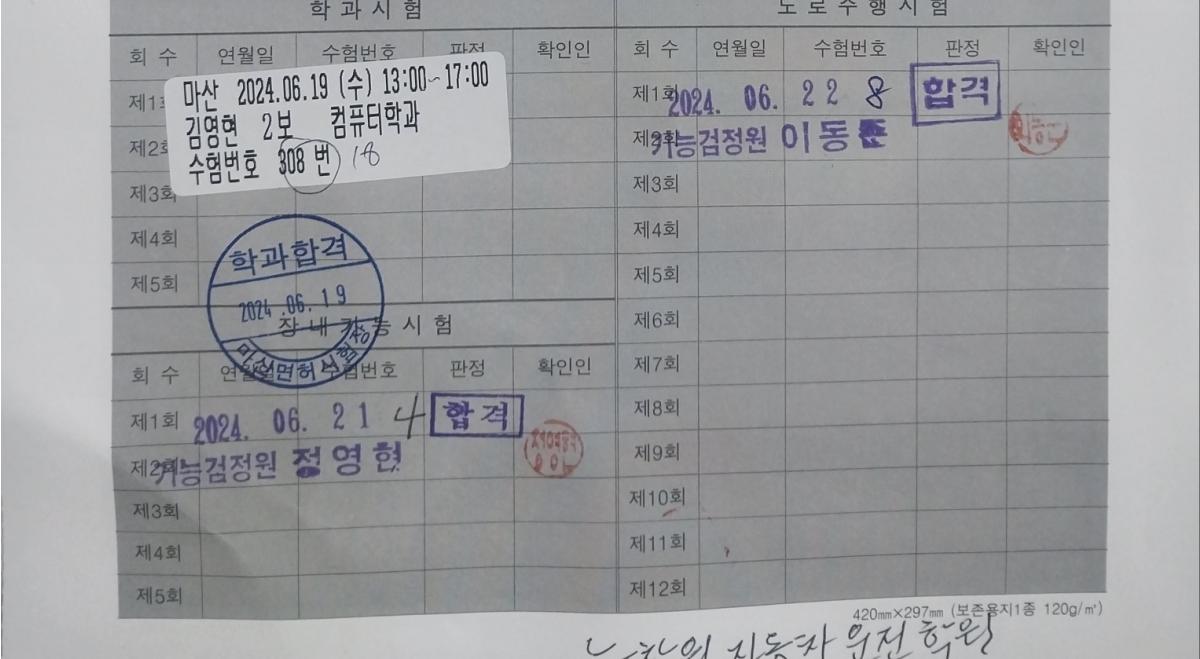 학 과 시 험
회 수 연월일 수험번호 판정 확인인
마산 2024.06.19 (수) 13:00~17:00
김영현 2보 컴퓨터학과
수험번호 308 번 18
제1회
제2회
제3회
제4회
제5회
학과합격
2024.06.19
장 내 기 능 시 험
회 수 연월일 수험번호 판정 확인인
제1회 2024. 06. 21 4 합격
제2회 기능검정원 정영현
제3회
제4회
제5회
도 로 주 행 시 험
회 수 연월일 수험번호 판정 확인인
제1회 2024. 06. 22 8 합격
제2회 기능검정원 이동
제3회
제4회
제5회
제6회
제7회
제8회
제9회
제10회
제11회
제12회
420㎜×297㎜ (보존용지1종 120g/㎡)
자동차 운전 학원